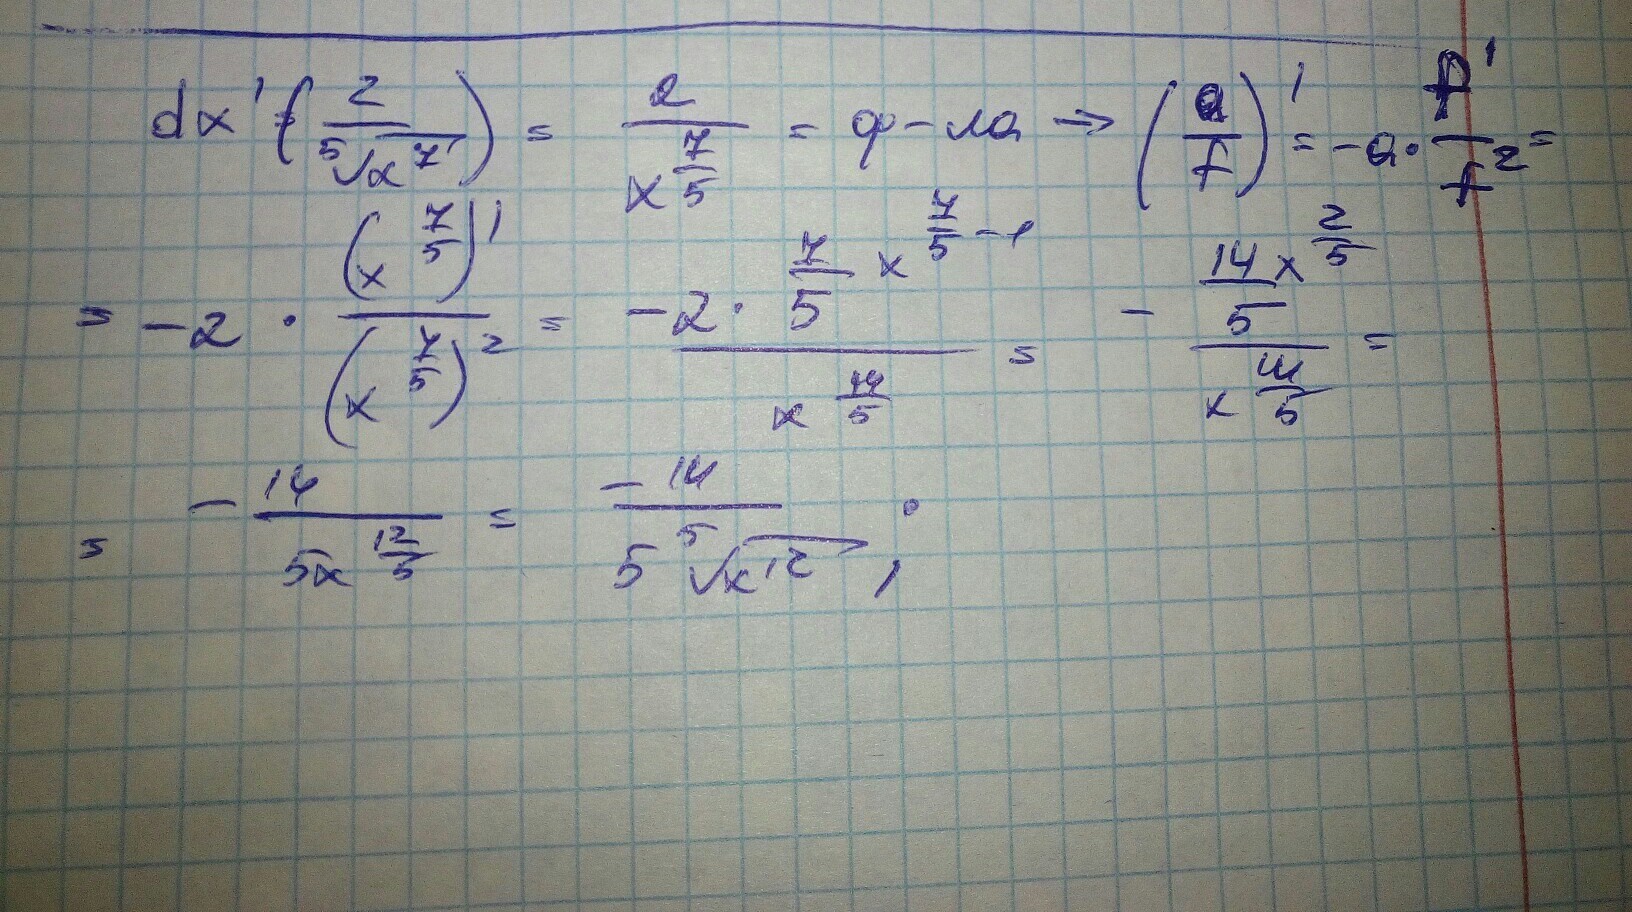 dx' = (2/⁵√x⁷) = 2/x^(7/5) = ф-ла → (a/f)' = -a · f'/f² =
= -2 · (x^(7/5))'/(x^(7/5))² = -2 · 7/5 x^(7/5 - 1)/x^(14/5) = - 14/5 x^(2/5)/x^(14/5) =
= - 14/5x^(12/5) = -14/5 ⁵√x¹² ; .